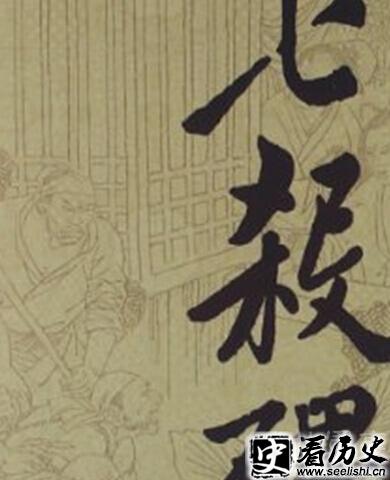 七
殺
史 看历史
www.seelishi.cn